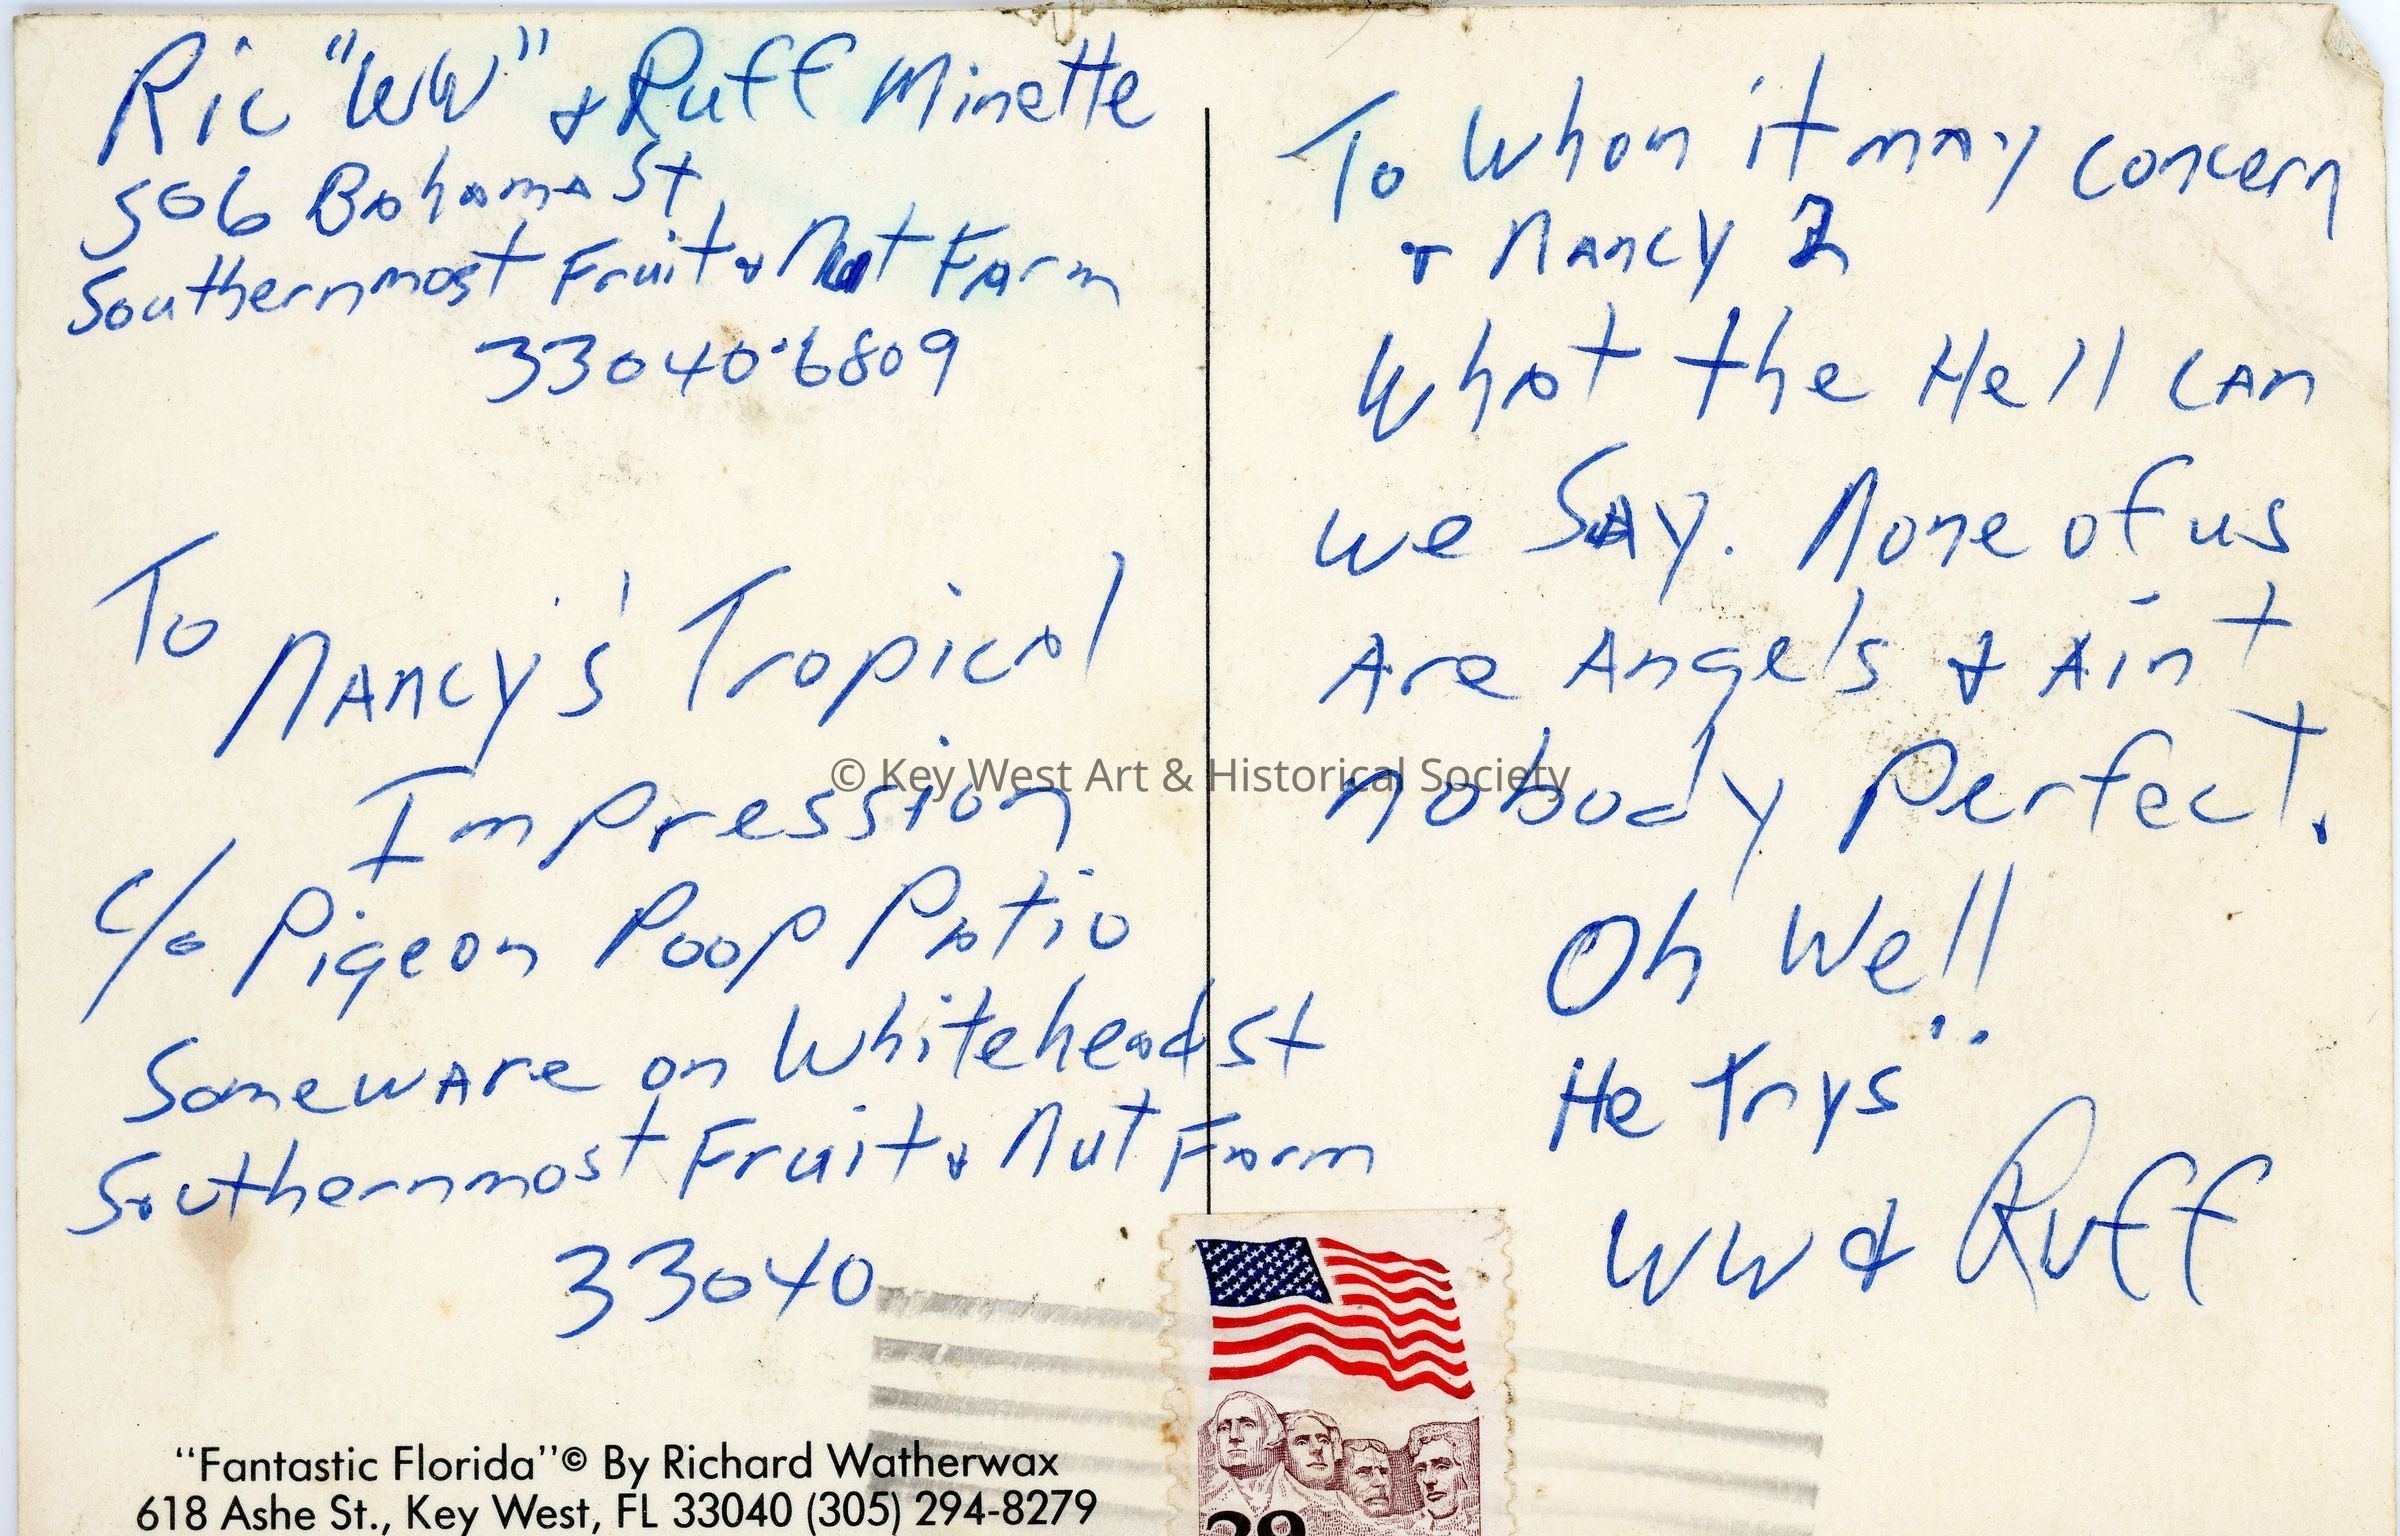 Ric "WW" & Ruff Minette
506 Bahama St
Southernmost Fruit & Nut Farm
33040-6809
To Nancy's Tropical
Impression
c/o Pigeon Poop Patio
Someware on Whitehead St
Southernmost Fruit & Nut Farm
33040
"Fantastic Florida"© By Richard Watherwax
618 Ashe St., Key West, FL 33040 (305) 294-8279
To Whon it may concern
& Nancy Z
What the Hell can
we Say. None of us
Are Angels & Ain't
nobody Perfect.
Oh Well
He Trys
WW & Ruff
© Key West Art & Historical Society
29